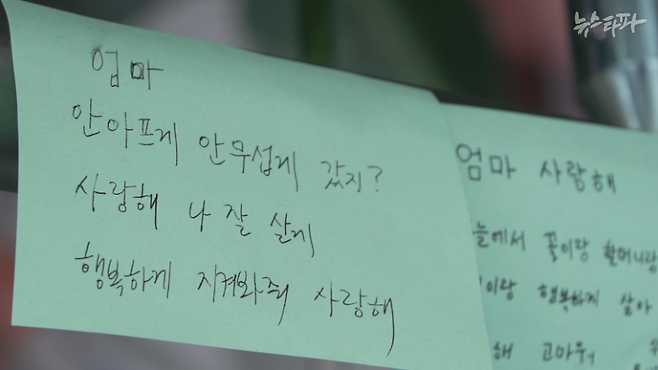 뉴스타파
엄마
안아프게 안무섭게 갔지?
사랑해 나 잘 살게
행복하게 지켜봐줘 사랑해
엄마 사랑해
늘에서 꽃이랑 할머니랑
이랑 행복하지 살아
해 고마워